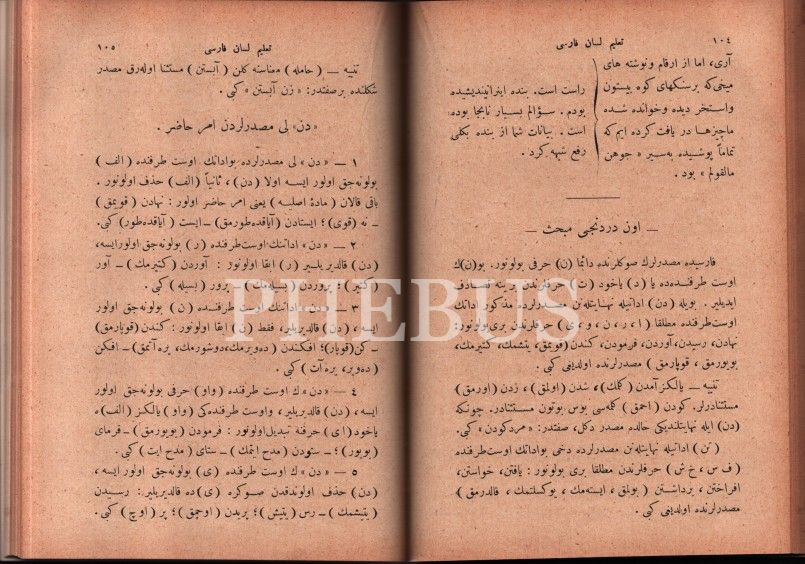 ١٠٤
تعليم لسان فارسى
آرى، اما از ارقام ونوشته هاى
ميخى كه برسنگهاى كوه بيستون
واستخر ديده وخوانده شده
ماچيزها در يافت كرده ايم كه
تماماً پوشيده به سير « جوهن
مالقولم » بود .
راست است. بنده اينرا نينديشيده
بودم . سؤالم بسيار نابجا بوده
است . بيانات شما از بنده بكلى
رفع شبهه كرد .
— اون دردنجى مبحث —
فارسيده مصدرلرك صوكلرنده دائما (ن) حرفى بولونور. بو(ن)ك
اوست طرفنده ده يا (د) ياخود (ت) حرفلرندن برينه تصادف
ايديلير . بويله (دن) اداتيله نهايتلنن مصدرلرده مذكور اداتك
اوست طرفنده مطلقا (ا، ر، ن، و، ى) حرفلرندن برى بولونور:
نهادن، رسيدن، آوردن، فرمودن، كندن (قويمق، يتشمك، كتيرمك،
بويورمق ، قوپارمق) مصدرلرنده اولديغى كبى .
تنبيه — يالكز آمدن (كلمك)، شدن (اولمق) ، زدن (اورمق)
مستثنادرلر. كودن (احمق) كلمه سى بوس بوتون مستثنادر. چونكه
(دن) ايله نهايتلنديكى حالده مصدر دكل، صفتدر: « مرد كودن » كبى.
(تن) اداتيله نهايتلنن مصدرلرده دخى بو اداتك اوست طرفنده
(ف، س، خ، ش) حرفلرندن مطلقا برى بولونور : يافتن، خواستن،
افراختن ، برداشتن (بولمق ، ايسته مك، يوكسلتمك، قالدرمق)
مصدرلرنده اولديغى كبى .
١٠٥
تعليم لسان فارسى
تنبيه — (حامله) معناسنه كلن (آبستن) مستثنا اوله رق مصدر
شكلنده بر صفتدر: « زن آبستن » كبى .
« دن » لى مصدرلردن امر حاضر .
١ — « دن » لى مصدرلرده بو اداتك اوست طرفنده (الف)
بولونه جق اولور ايسه اولا (دن) ، ثانياً (الف) حذف اولونور .
باقى قالان (مادهٔ اصليه) يعنى امر حاضر اولور : نهادن (قويمق)
— نه (قوى)؛ ايستادن (آياقده طورمق) — ايست (آياقده طور) كبى.
٢ — « دن » اداتنك اوست طرفنده (ر) بولونه جق اولور ايسه،
(دن) قالديريلير (ر) ابقا اولونور : آوردن (كتيرمك) — آور
(كتير) ؛ پروردن (بسله مك) — پرور (بسله) كبى .
٣ — « دن » اداتنك اوست طرفنده (ن) بولونه جق اولور
ايسه ، (دن) قالديريلير، فقط (ن) ابقا اولونور : كندن (قوپارمق)
— كن (قوپار)؛ افكندن (ده ويرمك، دوشورمك، يره آتمق) — افكن
(ده وير، يره آت) كبى .
٤ — « دن » ك اوست طرفنده (واو) حرفى بولونه جق اولور
ايسه ، (دن) قالديريلير، واوست طرفنده كى (واو) يالكز (الف) ه
ياخود (اى) حرفنه تبديل اولونور : فرمودن (بويورمق) — فرماى
(بويور) ؛ ستودن (مدح ايتمك) — ستاى (مدح ايت) كبى .
٥ — « دن » ك اوست طرفنده (ى) بولونه جق اولور ايسه ،
(دن) حذف اولوندقدن صوكره (ى) ده قالديريلير: رسيدن
(يتيشمك) — رس (يتيش)؛ پريدن (اوچمق)؛ پر (اوچ) كبى.
PHEBUS